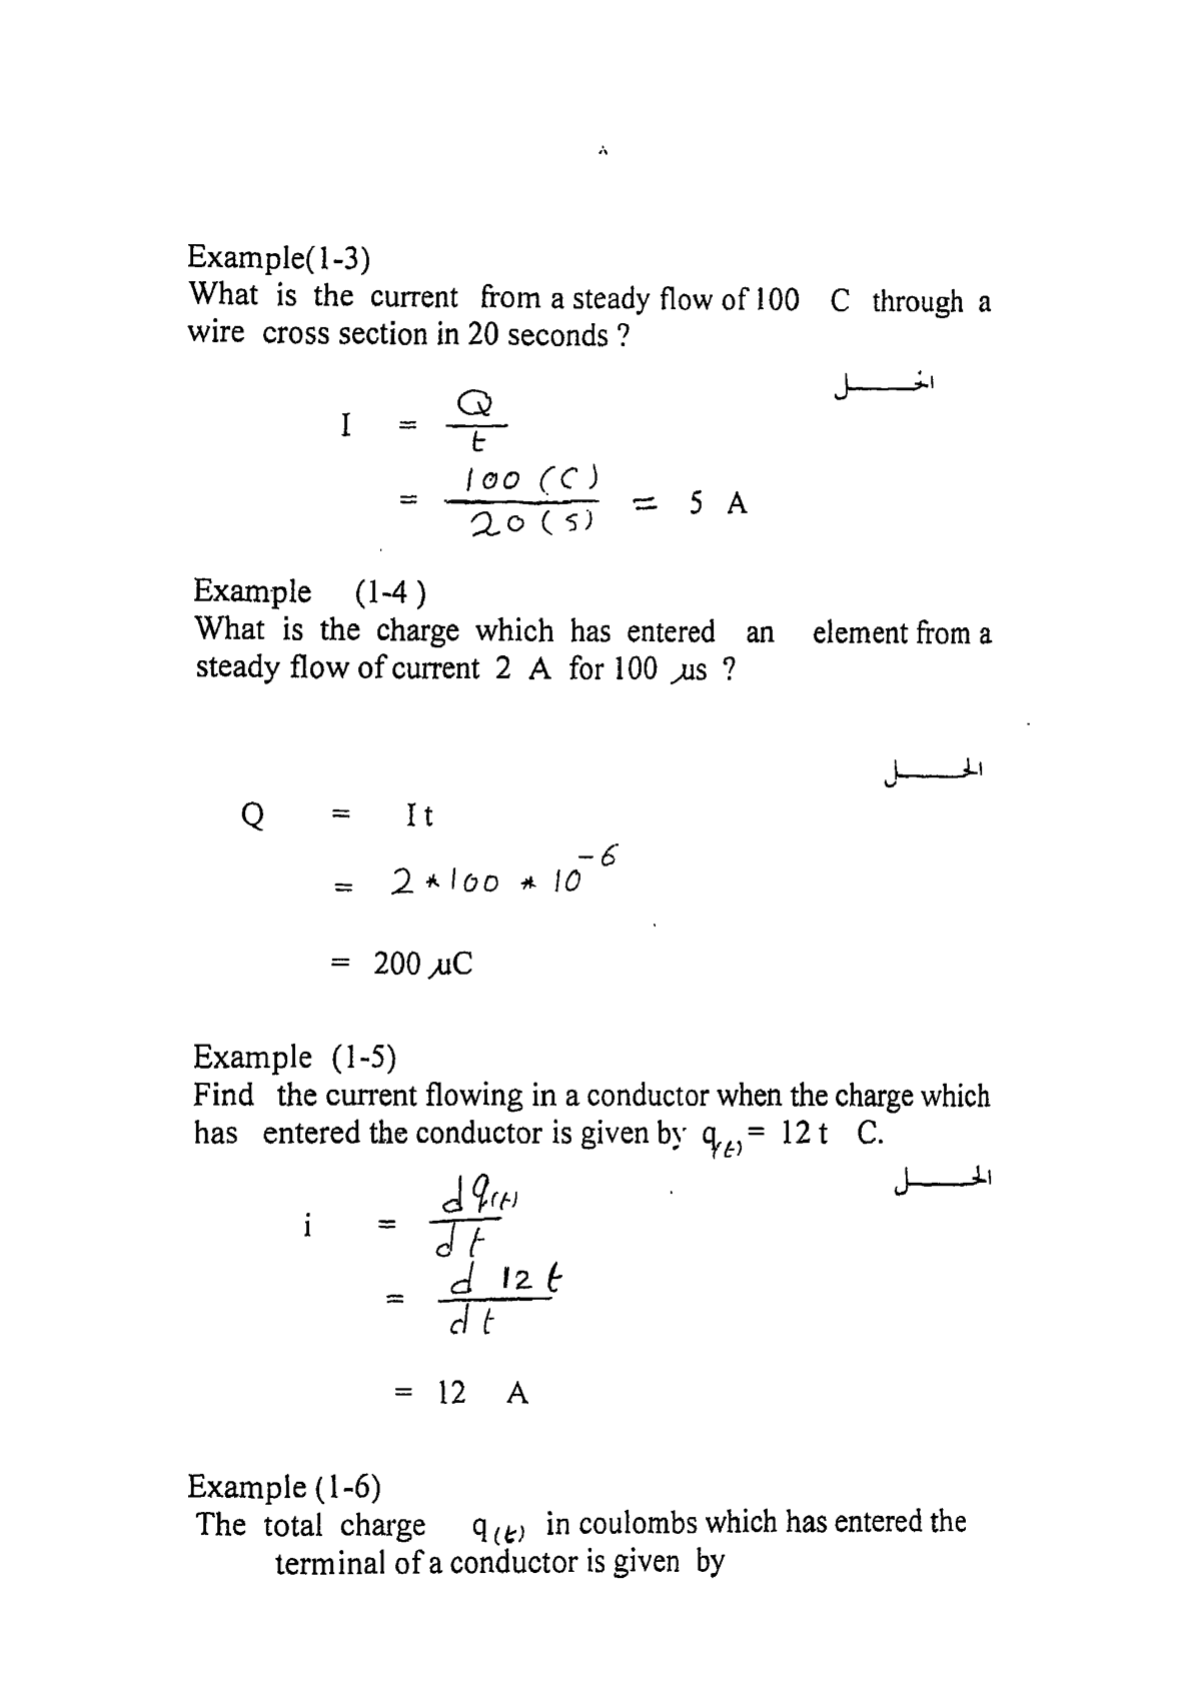 ٨
Example(1-3)
What is the current from a steady flow of 100 C through a
wire cross section in 20 seconds ?
الحـــل
I = Q/t
= 100 (C)/20 (s) = 5 A
Example (1-4 )
What is the charge which has entered an element from a
steady flow of current 2 A for 100 µs ?
الحـــل
Q = I t
= 2 * 100 * 10^-6
= 200 µC
Example (1-5)
Find the current flowing in a conductor when the charge which
has entered the conductor is given by q(t) = 12 t C.
الحـــل
i = d q(t)/d t
= d 12 t/d t
= 12 A
Example (1-6)
The total charge q(t) in coulombs which has entered the
terminal of a conductor is given by